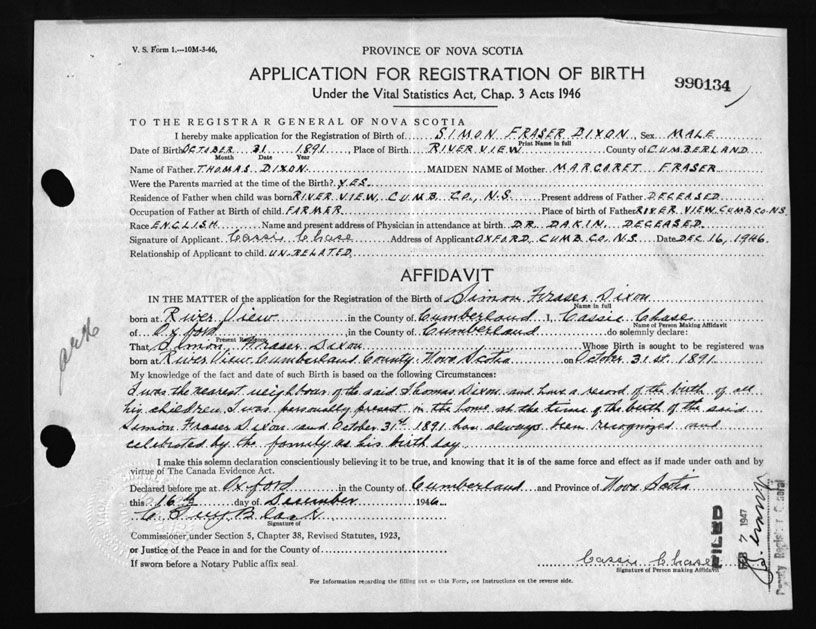 V. S. Form 1.—10M-3-46,
PROVINCE OF NOVA SCOTIA
APPLICATION FOR REGISTRATION OF BIRTH
990134
Under the Vital Statistics Act, Chap. 3 Acts 1946
TO THE REGISTRAR GENERAL OF NOVA SCOTIA
I hereby make application for the Registration of Birth of SIMON FRASER DIXON, Sex MALE
Print Name in full
Date of Birth OCTOBER 31 1891, Place of Birth RIVER VIEW County of CUMBERLAND
Month Date Year
Name of Father THOMAS DIXON MAIDEN NAME of Mother MARGARET FRASER
Were the Parents married at the time of the Birth? YES
Residence of Father when child was born RIVER VIEW, CUMB. CO., N.S. Present address of Father DECEASED
Occupation of Father at Birth of child FARMER Place of birth of Father RIVER VIEW CUMB CO. N.S.
Race ENGLISH Name and present address of Physician in attendance at birth DR. DAKIN, DECEASED
Signature of Applicant Cassie Chase Address of Applicant OXFORD, CUMB. CO. N.S. Date DEC 16, 1946.
Relationship of Applicant to child UN-RELATED
AFFIDAVIT
IN THE MATTER of the application for the Registration of the Birth of Simon Fraser Dixon
Name in full
born at River View in the County of Cumberland I, Cassie Chase
Name of Person Making Affidavit
of Oxford, in the County of Cumberland do solemnly declare:
Present Residence
That Simon Fraser Dixon Whose Birth is sought to be registered was
born at River View Cumberland County Nova Scotia on October 31st 1891
My knowledge of the fact and date of such Birth is based on the following Circumstances:
I was the nearest neighbour of the said Thomas Dixon and have a record of the birth of all
his children. I was personally present in the home at the time of the birth of the said
Simon Fraser Dixon and October 31st 1891 has always been recognized and
celebrated by the family as his birth day
I make this solemn declaration conscientiously believing it to be true, and knowing that it is of the same force and effect as if made under oath and by
virtue of The Canada Evidence Act.
Declared before me at Oxford in the County of Cumberland and Province of Nova Scotia
this 16th day of December 1946
Black
Signature of
Commissioner under Section 5, Chapter 38, Revised Statutes, 1923,
or Justice of the Peace in and for the County of
If sworn before a Notary Public affix seal
Cassie Chase
Signature of Person making Affidavit
For Information regarding the filling out of this Form, see Instructions on the reverse side.
FILED
FEB 7 1947
Deputy Registrar General